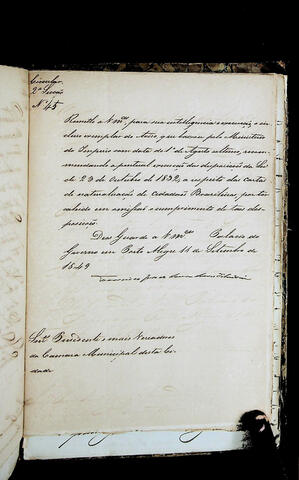 Circular
2ª Secção
Nº 45
Remetto a Vmces para sua intelligencia e execução, o in-
cluso exemplar do Aviso, que baixou pelo Ministerio
do Imperio com data de 1º de Agosto ultimo, recom-
mendando a pontual execução das disposições da Lei
de 23 de Outubro de 1832, a respeito das cartas
de naturalisação de cidadãos Brasileiros, por
em vigor o cumprimento de taes dis-
posições
Deos Guarde a Vmces Palacio do
Governo em Porto Alegre 11 de Setembro de
1849
Senres Presidente e mais Vereadores
da Camara Municipal desta Ci-
dade